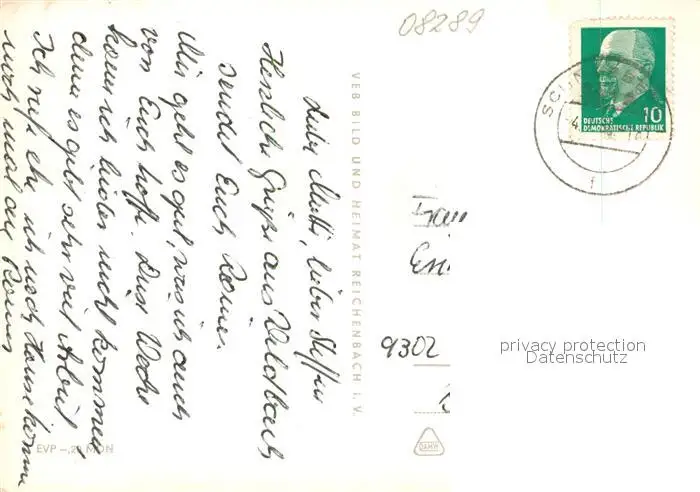 08289
Liebe Mutti, lieber Steffen
Herzliche Grüße aus Wildbach
sendet Euch Rainer.
Mir geht es gut, was ich auch
von Euch hoffe. Diese Woche
komm ich leider nicht kommen
denn es gibt sehr viel Arbeit
Ich rufe ehe ich nach Hause komme
noch mal an
VEB BILD UND HEIMAT REICHENBACH I. V.
EVP –,20 MDN
10
DEUTSCHE
DEMOKRATISCHE REPUBLIK
Frau
9302
DAMW
privacy protection
Datenschutz